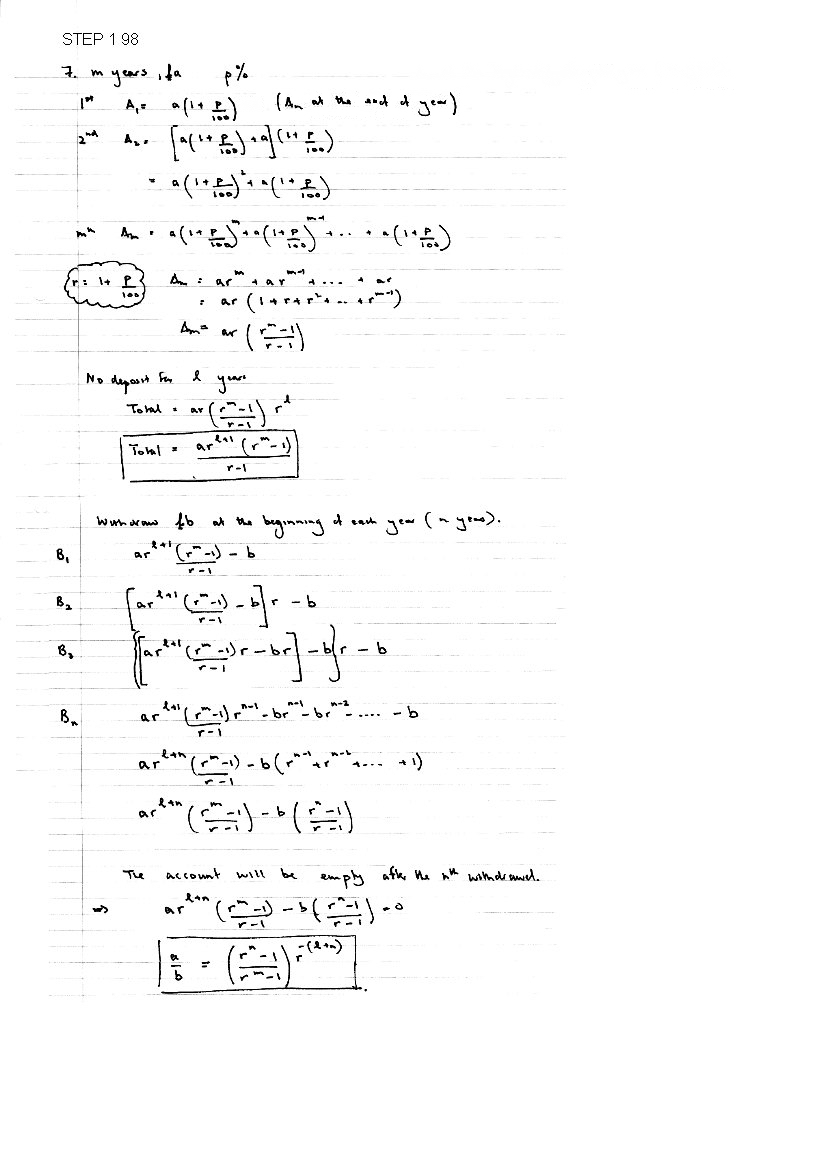 STEP 1 98
7. m years, £a p%
1st A₁ = a(1 + p/100) (Am at the end of year)
2nd A₂ = [a(1 + p/100) + a](1 + p/100)
= a(1 + p/100)² + a(1 + p/100)
mth Am = a(1 + p/100)^m + a(1 + p/100)^(m-1) + .. + a(1 + p/100)
r = 1 + p/100
Am = ar^m + ar^(m-1) + ... + ar
= ar(1 + r + r² + .. + r^(m-1))
Am = ar((r^m - 1)/(r - 1))
No deposit for l years
Total = ar((r^m - 1)/(r - 1)) r^l
Total = ar^(l+1)(r^m - 1)/(r - 1)
Withdraw £b at the beginning of each year (n years).
B₁ ar^(l+1)(r^m - 1)/(r - 1) - b
B₂ [ar^(l+1)(r^m - 1)/(r - 1) - b]r - b
B₃ {[ar^(l+1)(r^m - 1)/(r - 1) r - br] - b}r - b
Bn ar^(l+1)(r^m - 1)/(r - 1) r^(n-1) - br^(n-1) - br^(n-2) - .... - b
ar^(l+n)(r^m - 1)/(r - 1) - b(r^(n-1) + r^(n-2) + ... + 1)
ar^(l+n)((r^m - 1)/(r - 1)) - b((r^n - 1)/(r - 1))
The account will be empty after the nth withdrawal.
⇒ ar^(l+n)((r^m - 1)/(r - 1)) - b((r^n - 1)/(r - 1)) = 0
a/b = ((r^n - 1)/(r^m - 1)) r^-(l+n)